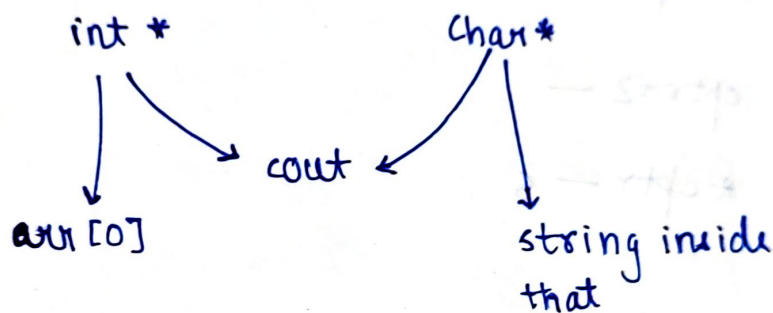 int * Char*
cout
arr [0] string inside
that